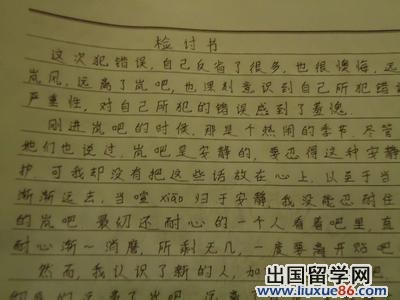 检讨书
这次犯错误，自己反省了很多，也很懊悔，远
岚风，远离了岚吧，也深刻意识到自己所犯错误
严重性，对自己所犯的错误感到了羞愧
刚进岚吧的时候，那是个热闹的季节，尽管
她们也说过，岚吧是安静的，要忍得这种安静
护，可我却没有把这些话放在心上，以至于当
渐渐远去，当喧xiāo归于安静，我没能忍耐住
的岚吧，最初还耐心的一个人看着吧里，直
耐心渐一消磨，所剩无几，一度要离开贴吧
然而，我认识了新的人，加
远离了岚吧
出国留学网
www.liuxue86.com